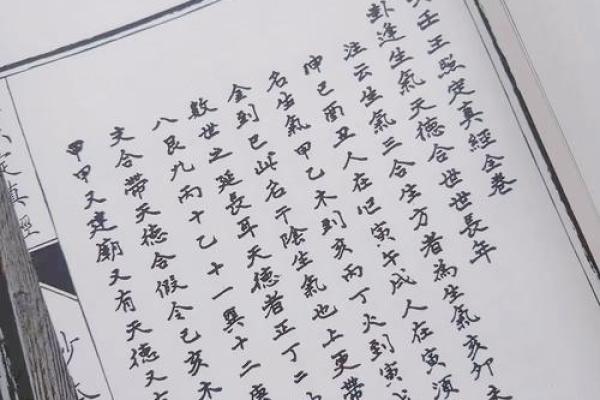 壬王照定真經全卷
卦逢生氣天德合世世長年
注云生氣三合生方者為生氣亥卯未
坤巳酉丑人在巳寅午戌人在寅須
名生氣甲乙木到亥丙丁火到寅
金到巳此名干陰生氣也上更帶
数世之延長耳天德者正丁二
八艮九丙十乙十一巽十二庚
文合帶天德合假令己亥木
甲甲又建廟又有天德又
定真經